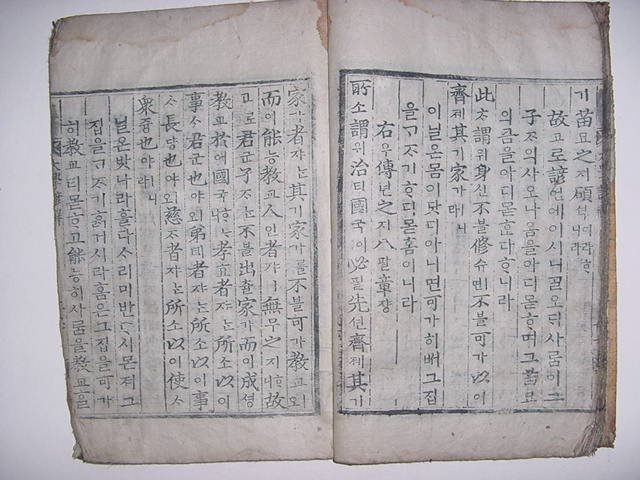 기苗묘之지碩셕이라ᄒᆞ니라
故고로諺언에이시니ᄀᆞᆯ오ᄃᆡ사ᄅᆞᆷ이그
子ᄌᆞ의사오나옴을아디몯ᄒᆞ며그苗묘
의큼을아디몯ᄒᆞᆫ다ᄒᆞ니라
此ᄎᆞ謂위身신不블修슈ㅣ면不블可가以이
齊졔其기家가ㅣ니라
이닐온몸이닷디아니면可가히ᄡᅥ그집
을ᄀᆞᄌᆞ기ᄒᆞ디몯홈이니라
右우傳뎐之지八팔章쟝
所소謂위治티國국이必필先션齊졔其기
家가者쟈ᄂᆞᆫ其기家가ᄅᆞᆯ不블可가敎교ㅣ오
而이能능敎교人인者쟈ㅣ無무之지ᄒᆞ니故
고로君군子ᄌᆞᄂᆞᆫ不블出츌家가而이成셩
敎교於어國국ᄒᆞᄂᆞ니孝효者쟈ᄂᆞᆫ所소以이
事ᄉᆞ君군也야ㅣ오弟뎨者쟈ᄂᆞᆫ所소以이事
ᄉᆞ長댱也야ㅣ오慈ᄌᆞ者쟈ᄂᆞᆫ所소以이使ᄉᆞ
衆즁也야ㅣ니라
닐온밧나라ᄒᆞᆯ다ᄉᆞ리미반ᄃᆞ시몬져그
집을ᄀᆞᄌᆞ기ᄒᆞᆯ거시라홈은그집을可가
히敎교티몯ᄒᆞ고能능히사ᄅᆞᆷ을敎교